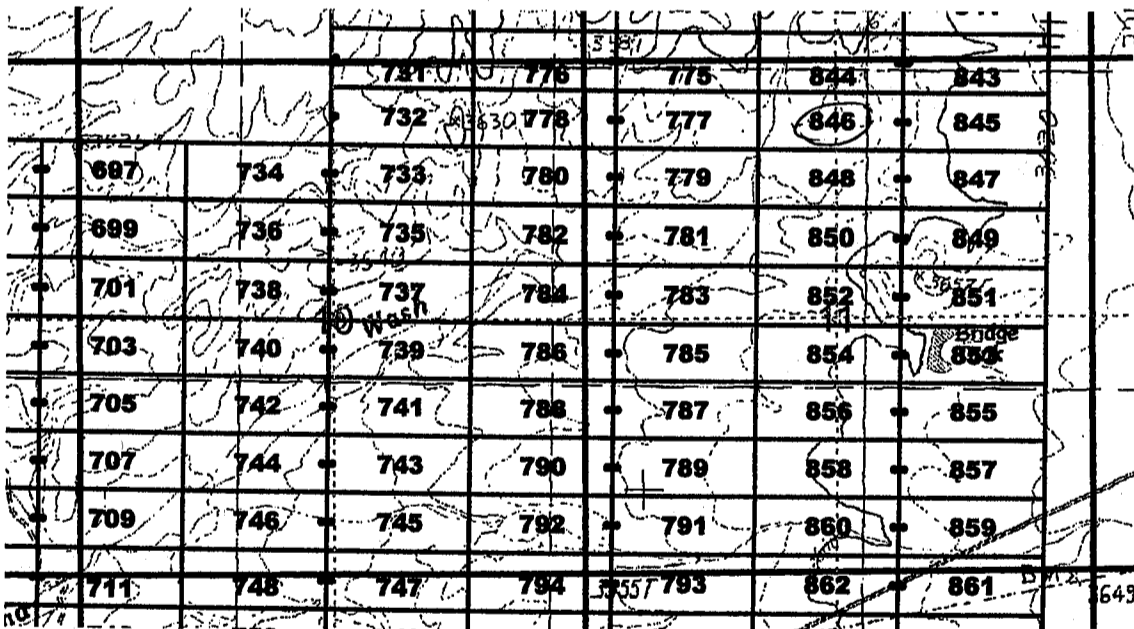 731 776 775 844 843
732 x3630 778 777 846 845
697 734 733 780 779 848 847
699 736 735 782 781 850 849
701 738 737 784 783 852 851
Wash
Bridge
703 740 739 786 785 854 853
705 742 741 788 787 856 855
707 744 743 790 789 858 857
709 746 745 792 791 860 859
711 748 747 794 3955T 793 862 861